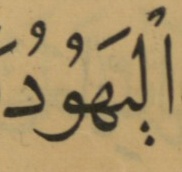 اُلْيَهُودُ